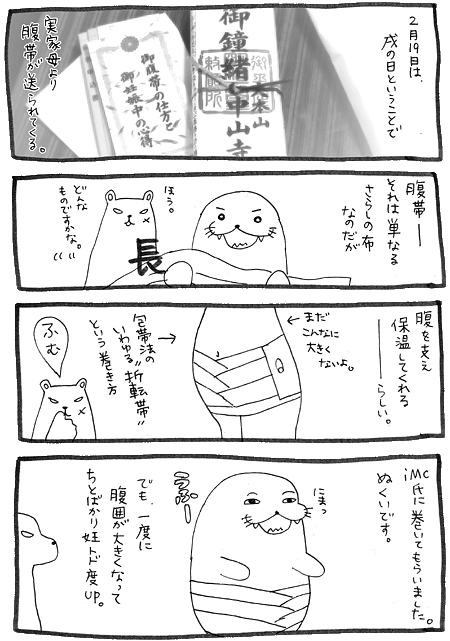 2月19日は、
戌の日ということで
御鐘緒
中山寺
御腹帯の仕方と
御妊娠中の心得
実家母より
腹帯が送られてくる。
腹帯――
それは単なる
さらしの布
なのだが
ほう。
長
どんな
ものですかな。
腹を支え
保温してくれる
――らしい。
まだ
こんなに
大きく
ないよ。
包帯法の
いわゆる"折転帯"
という巻き方
ふむ
iMC氏に巻いてもらいました。
ぬくいです。
にまっ
でも、一度に
腹囲が大きくなって
ちとばかり妊トド度
UP。